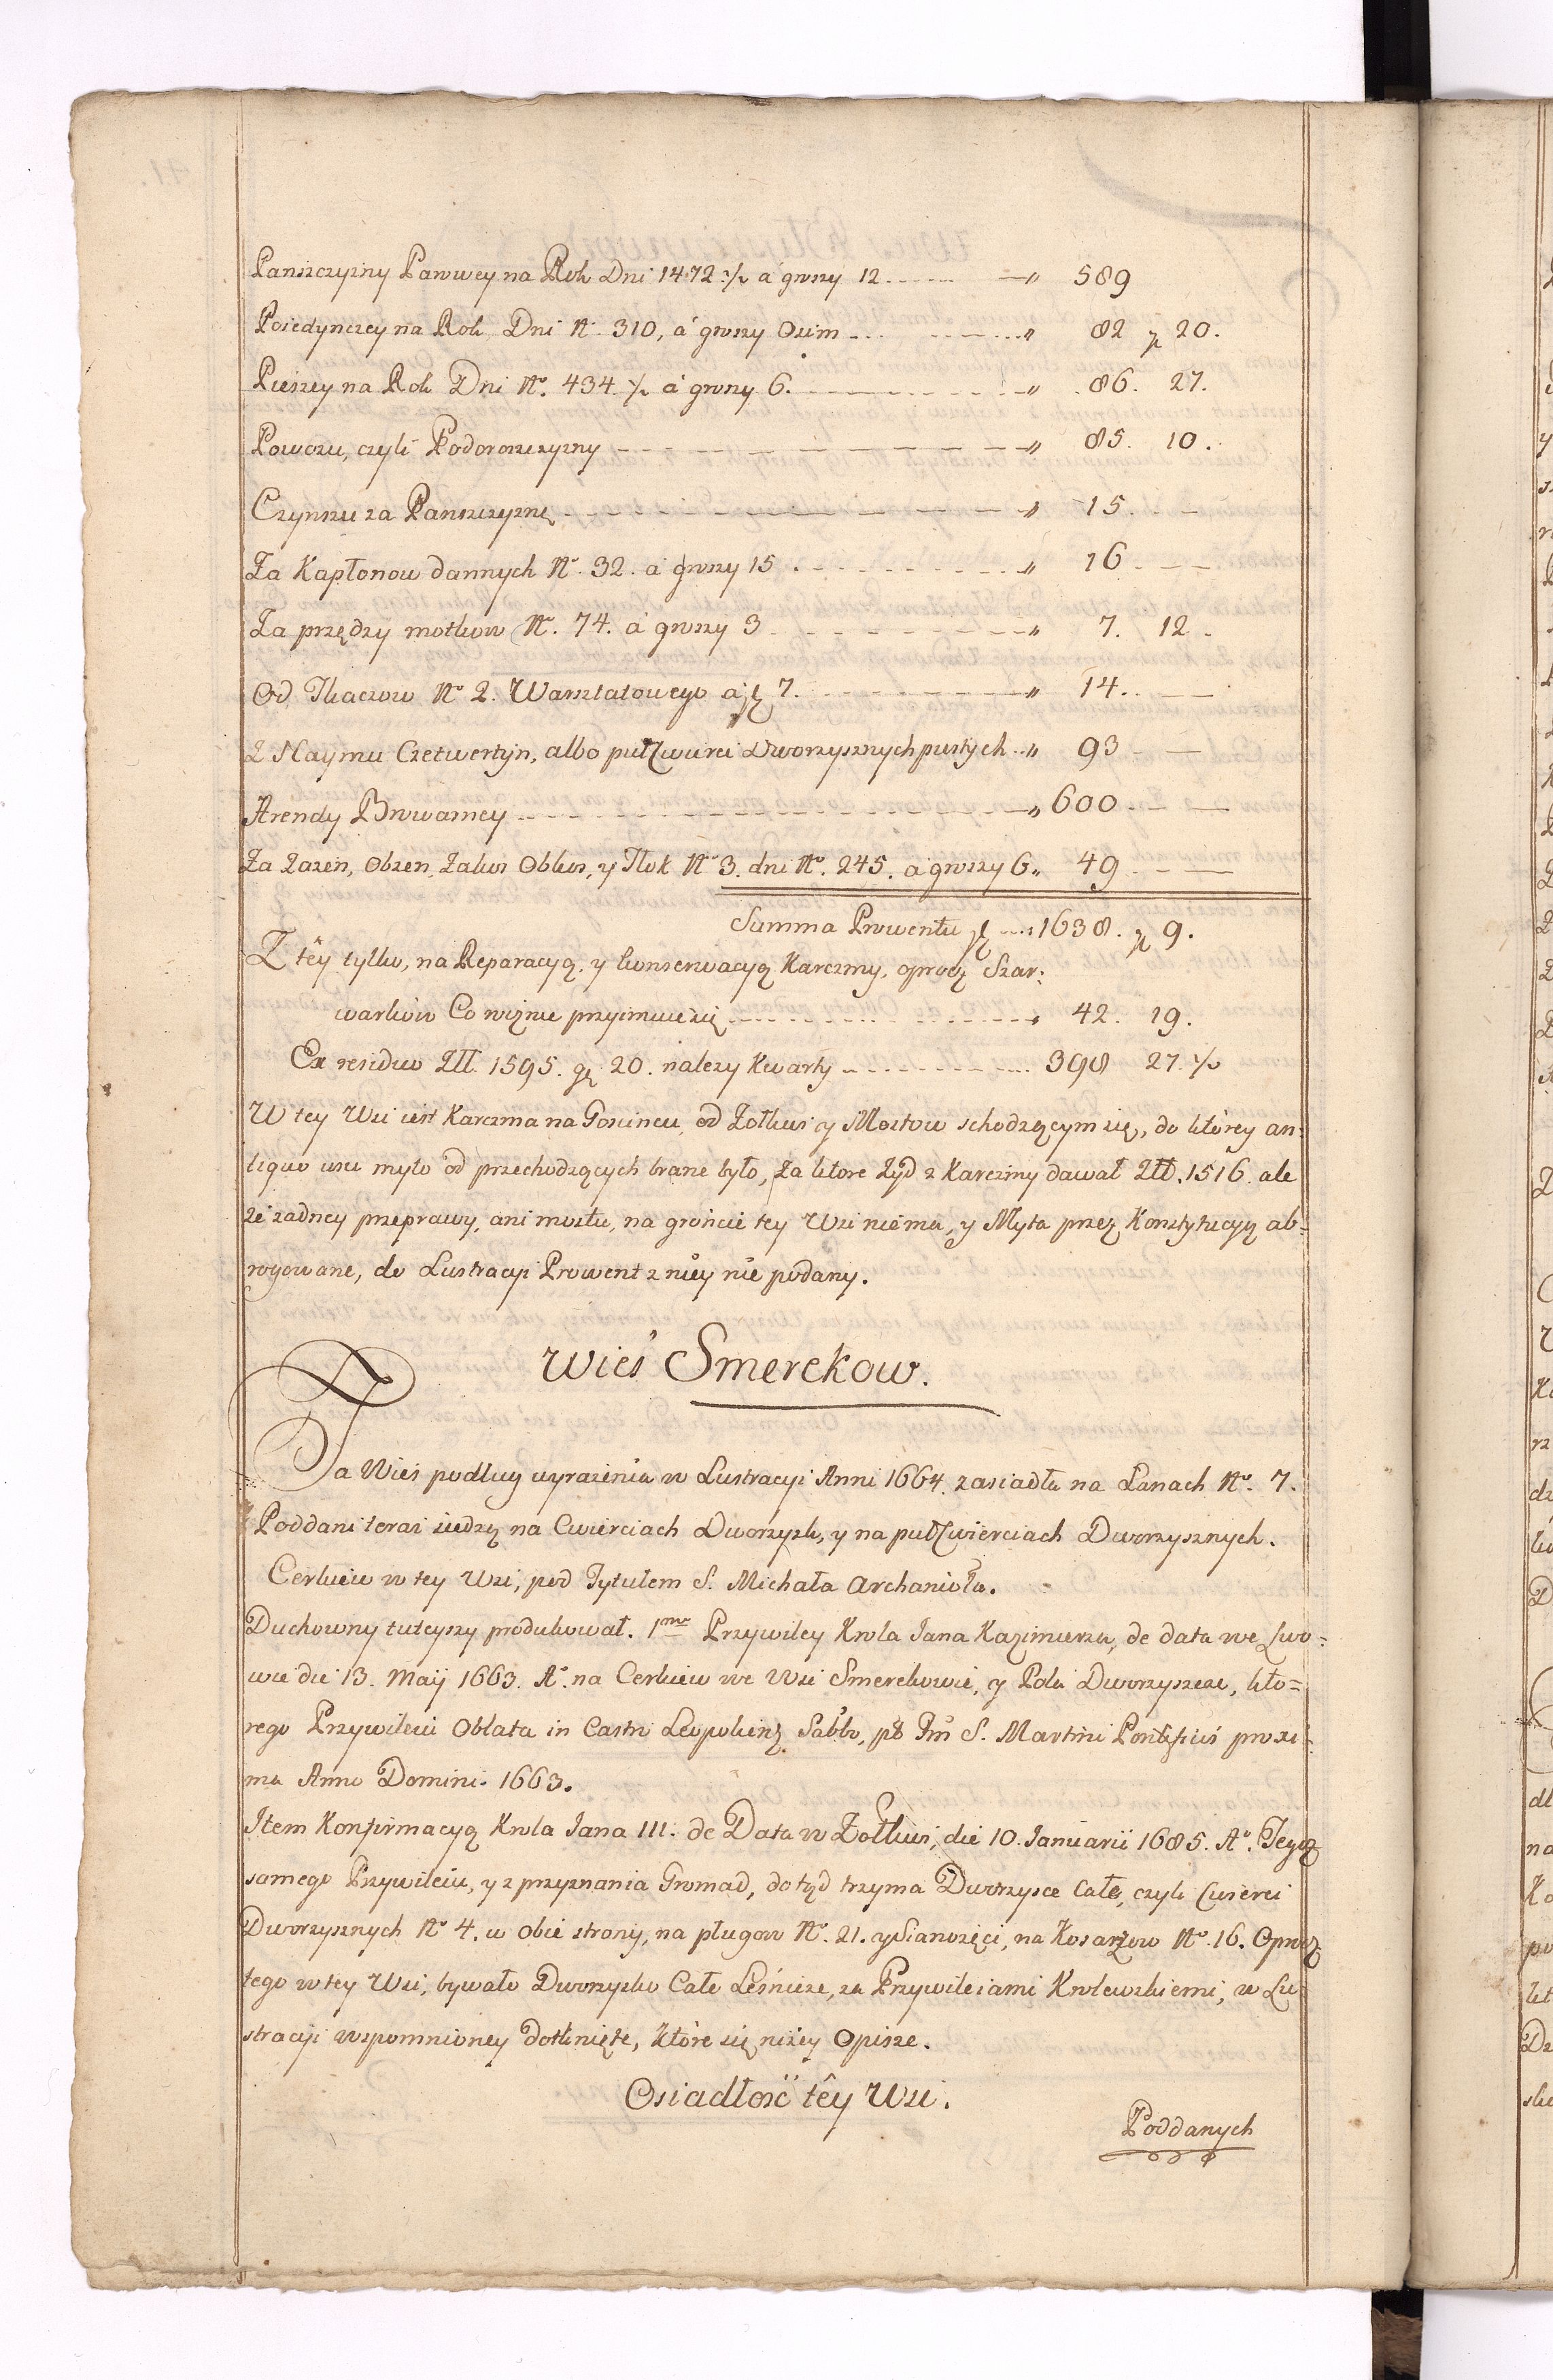 Panszczyzny Parowey na Rok Dni 1472 ½ a groszy 12 „ 589
Poiedynczey na Rok Dni No 310, a groszy Osim „ 82 gr 20.
Pieszey na Rok Dni No. 434. ½ a groszy 6. „ 86. 27.
Powozu, czyli Podoroszczyzny „ 85. 10.
Czynszu za Panszczyznę „ 15.
Za Kapłonow dannych No. 32. a groszy 15 „ 16
Za przędzy motkow No. 74. a groszy 3 „ 7. 12
Od Tkaczow No 2. Warsztatowego a zł 7. „ 14.
Z Naymu Czetwertyn, albo puł Cwierci Dworzysznych pustych „ 93
Arendy Browarney „ 600
Za Zazen, Obzen, Zakos Obkos, y Tłok No 3. dni No. 245. a groszy 6 „ 49
Summa Prowentu zł 1638. gr 9.
Z tey tylko, na Reparacyą, y konserwacyą Karczmy, oprocz Szar:
warkow Co rocznie przyimuie się 42. 19.
Ex residuo Zll. 1595. gr 20. nalezy Kwarty 398 27. ½
W tey Wsi iest Karczma na Goscincu od Zołkwi y Mostow schodzącym się, do ktorey an:
tiquo usu myto od przechodzących brane było, za ktore Zyd z Karczmy dawał Złł. 1516. ale
ze zadney przeprawy, ani mostu, na gruncie tey Wsi niema, y Myta przez Konstytucyą ab-
rogowane, do Lustracyi Prowent z niey nie podany.
Wieś Smerekow.
Ta Wieś podług wyrazenia w Lustracyi Anni 1664. zasiadła na Łanach No. 7.
Poddani teraz siedzą na Cwierciach Dworzysk, y na puł Cwierciach Dworzysznych.
Cerkiew w tey Wsi, pod Tytułem S. Michała Archanioła.
Duchowny tuteyszy produkował. 1mo Przywiley Krola Jana Kazimierza, de data we Lwo-
wie die 13. Maij 1663. Ao. na Cerkiew we Wsi Smerekowie, y Pola Dworzyszcze, kto=
rego Przywileiu Oblata in Castro Leopoliensi Sabbo, pt Fm S. Martini Pontificis proxi-
ma Anno Domini 1663.
Item Konfirmacyą Krola Jana III. de Data w Zołkwi, die 10. Januarii 1685. Ao. Tegoz
samego Przywileiu, y z przyznania Gromad, dotąd trzyma Dworzysce Całe, czyli Cwierci
Dworzysznych No 4. w obie strony, na pługow No. 21. y Sianozęci, na Kosarzow No. 16. Oprocz
tego w tey Wsi, bywało Dworzysko Całe Leśnicze, za Przywileiami Krolewskiemi, w Lu-
stracyi wspomnioney dotknięte, które się nizey Opisze.
Osiadłość tey Wsi.
Poddanych